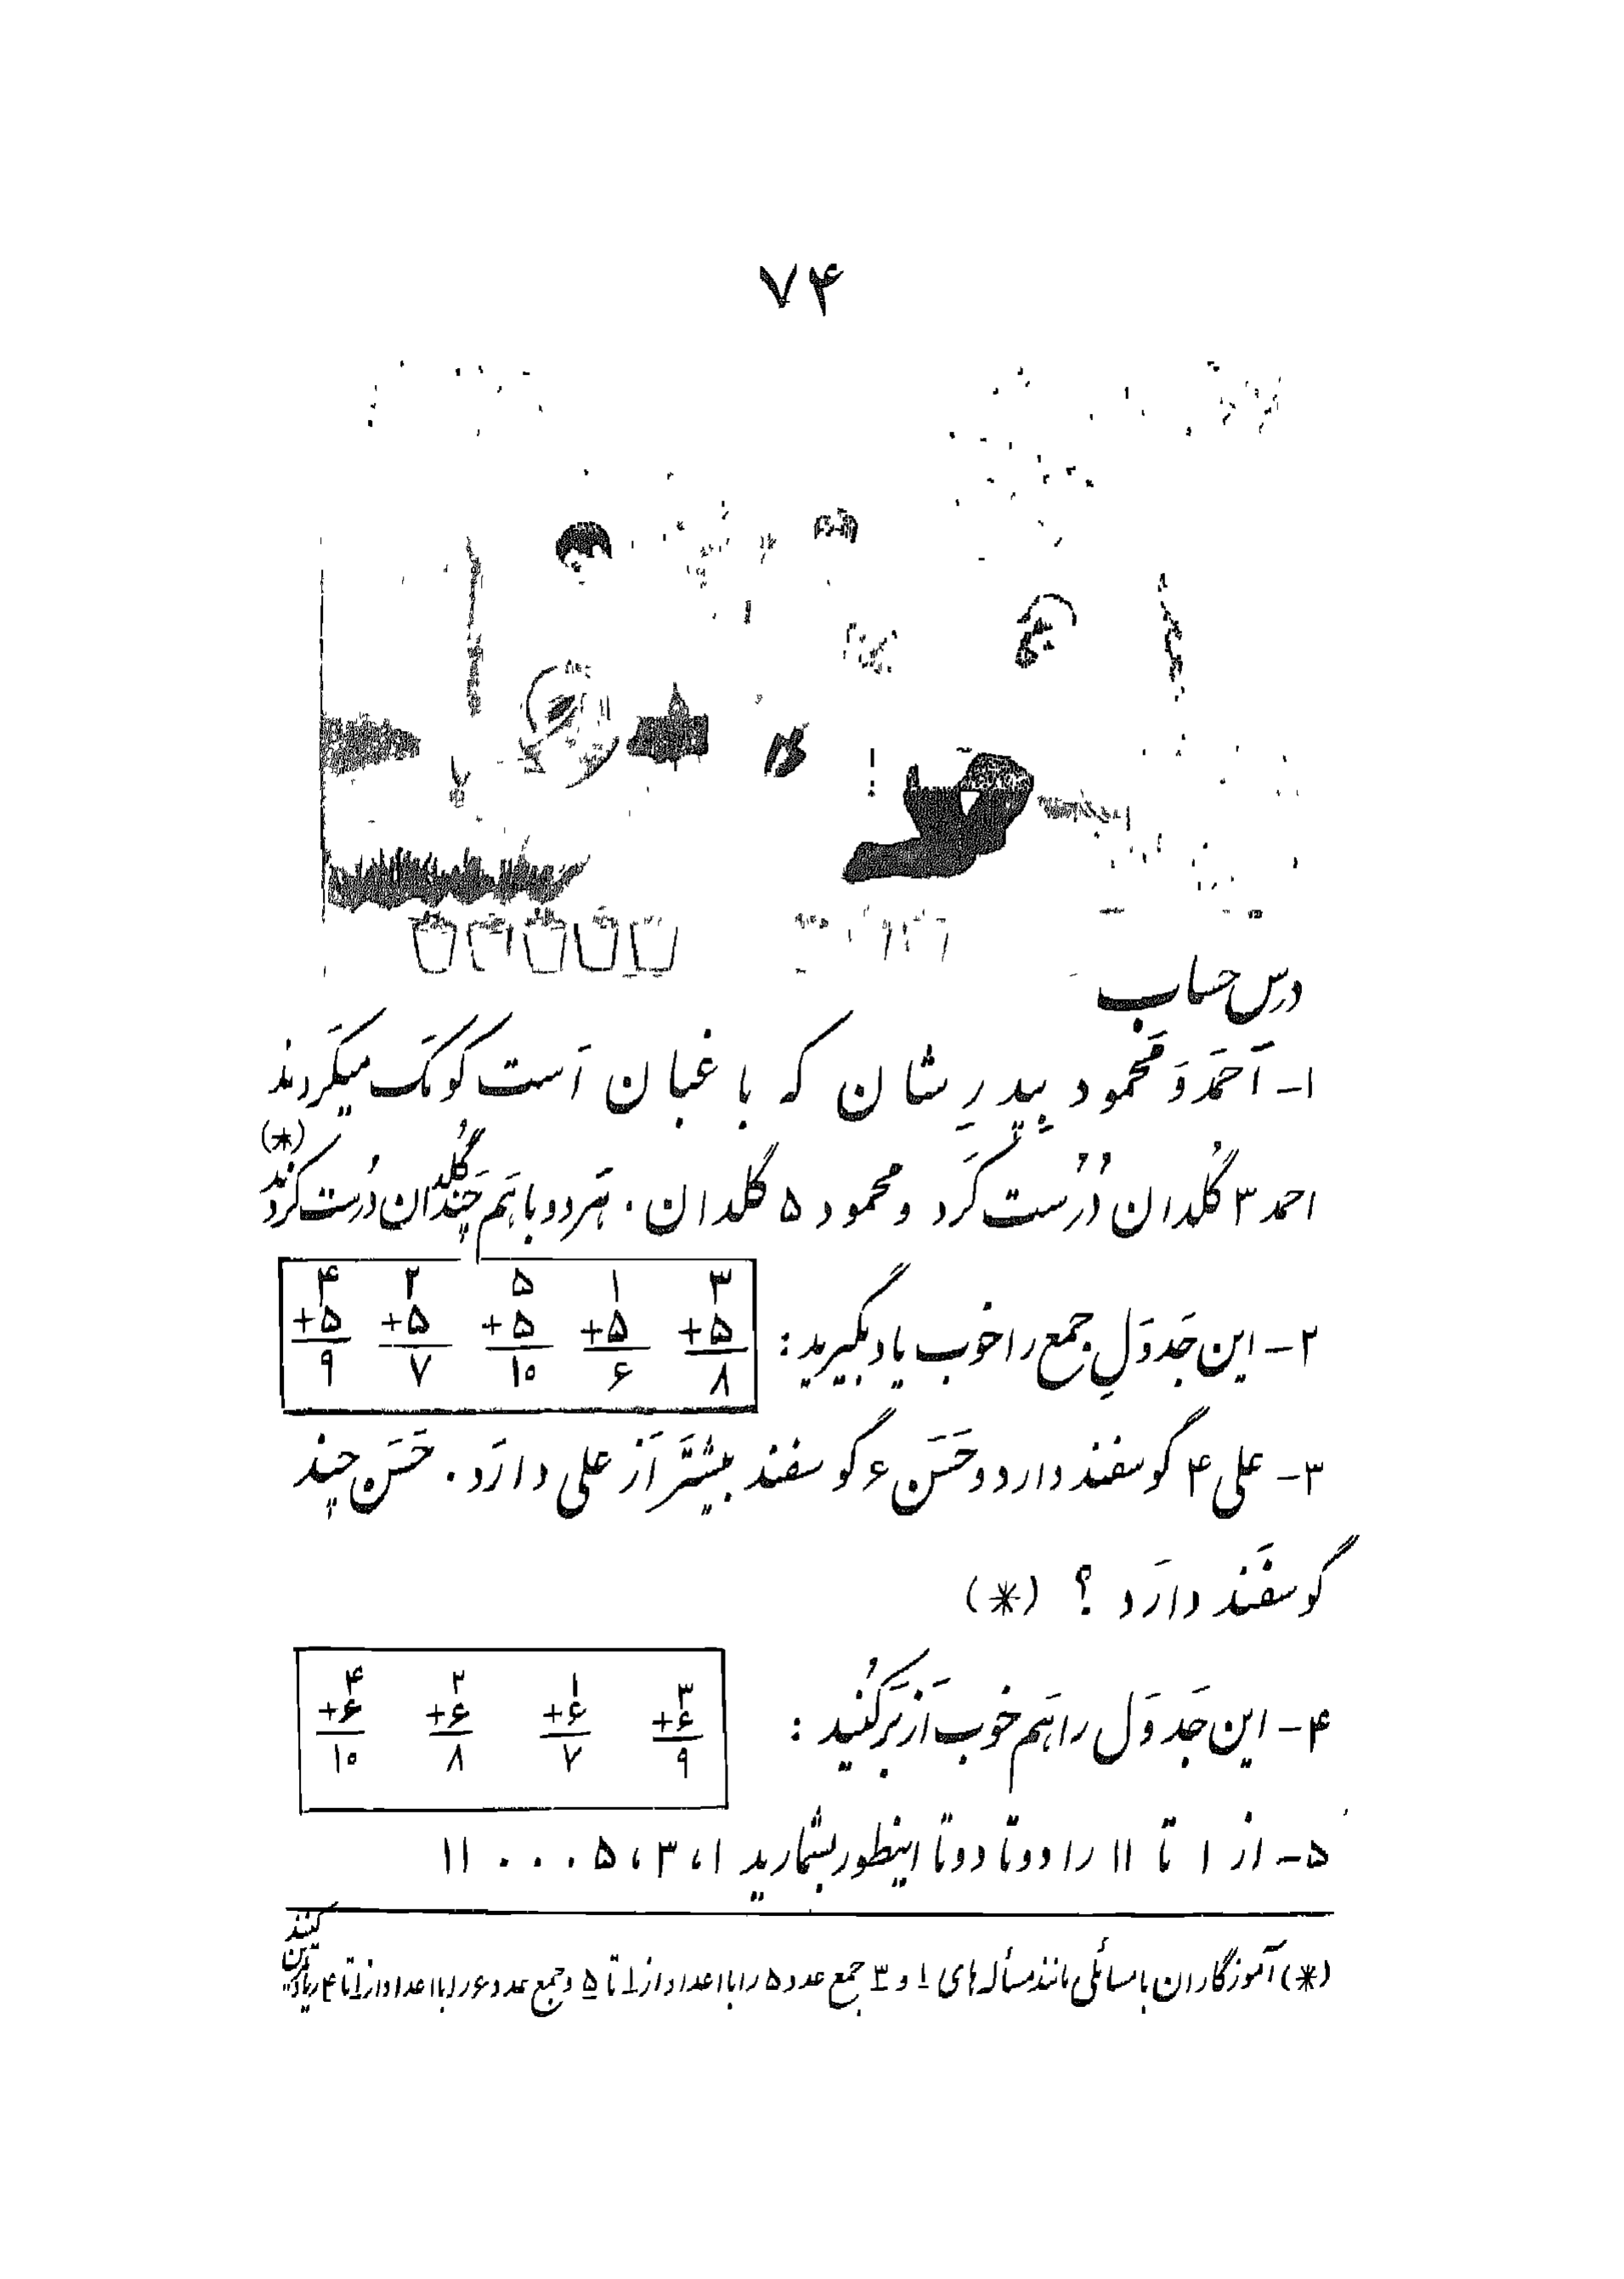 ۷۴
درس حساب
۱- اَحمَد وَ مَحمود بِپِدَرِ شان که باغبان اَست کومَک میکَردند
احمد ۳ گُلدان دُرُست کَرد و محمود ۵ گلدان . هَردو باهَم چَند گُلدان دُرست کردند (*)
۲- این جَدوَلِ جمع را خوب یاد بگیرید :
۳ ۱ ۵ ۲ ۴
+۵ +۵ +۵ +۵ +۵
۸ ۶ ۱۰ ۷ ۹
۳- علی ۴ گوسفند دارد و حَسَن ۶ گوسفند بیشتَر اَز علی دارَد . حَسَن چند
گوسفَند دارَد ؟ (*)
۴- این جَدوَل را هَم خوب اَز بَر کُنید :
۳ ۱ ۲ ۴
+۶ +۶ +۶ +۶
۹ ۷ ۸ ۱۰
۵- از ۱ تا ۱۱ را دوتا دوتا اینطور بشمارید ۱، ۳، ۵ . . . ۱۱
(*) آموزگاران با مسائلی مانند مسأله های ۱ و ۳ جمع عدد ۵ را با اعداد از ۱ تا ۵ و جمع عدد ۶ را با اعداد از ۱ تا ۴ تمرین کنند